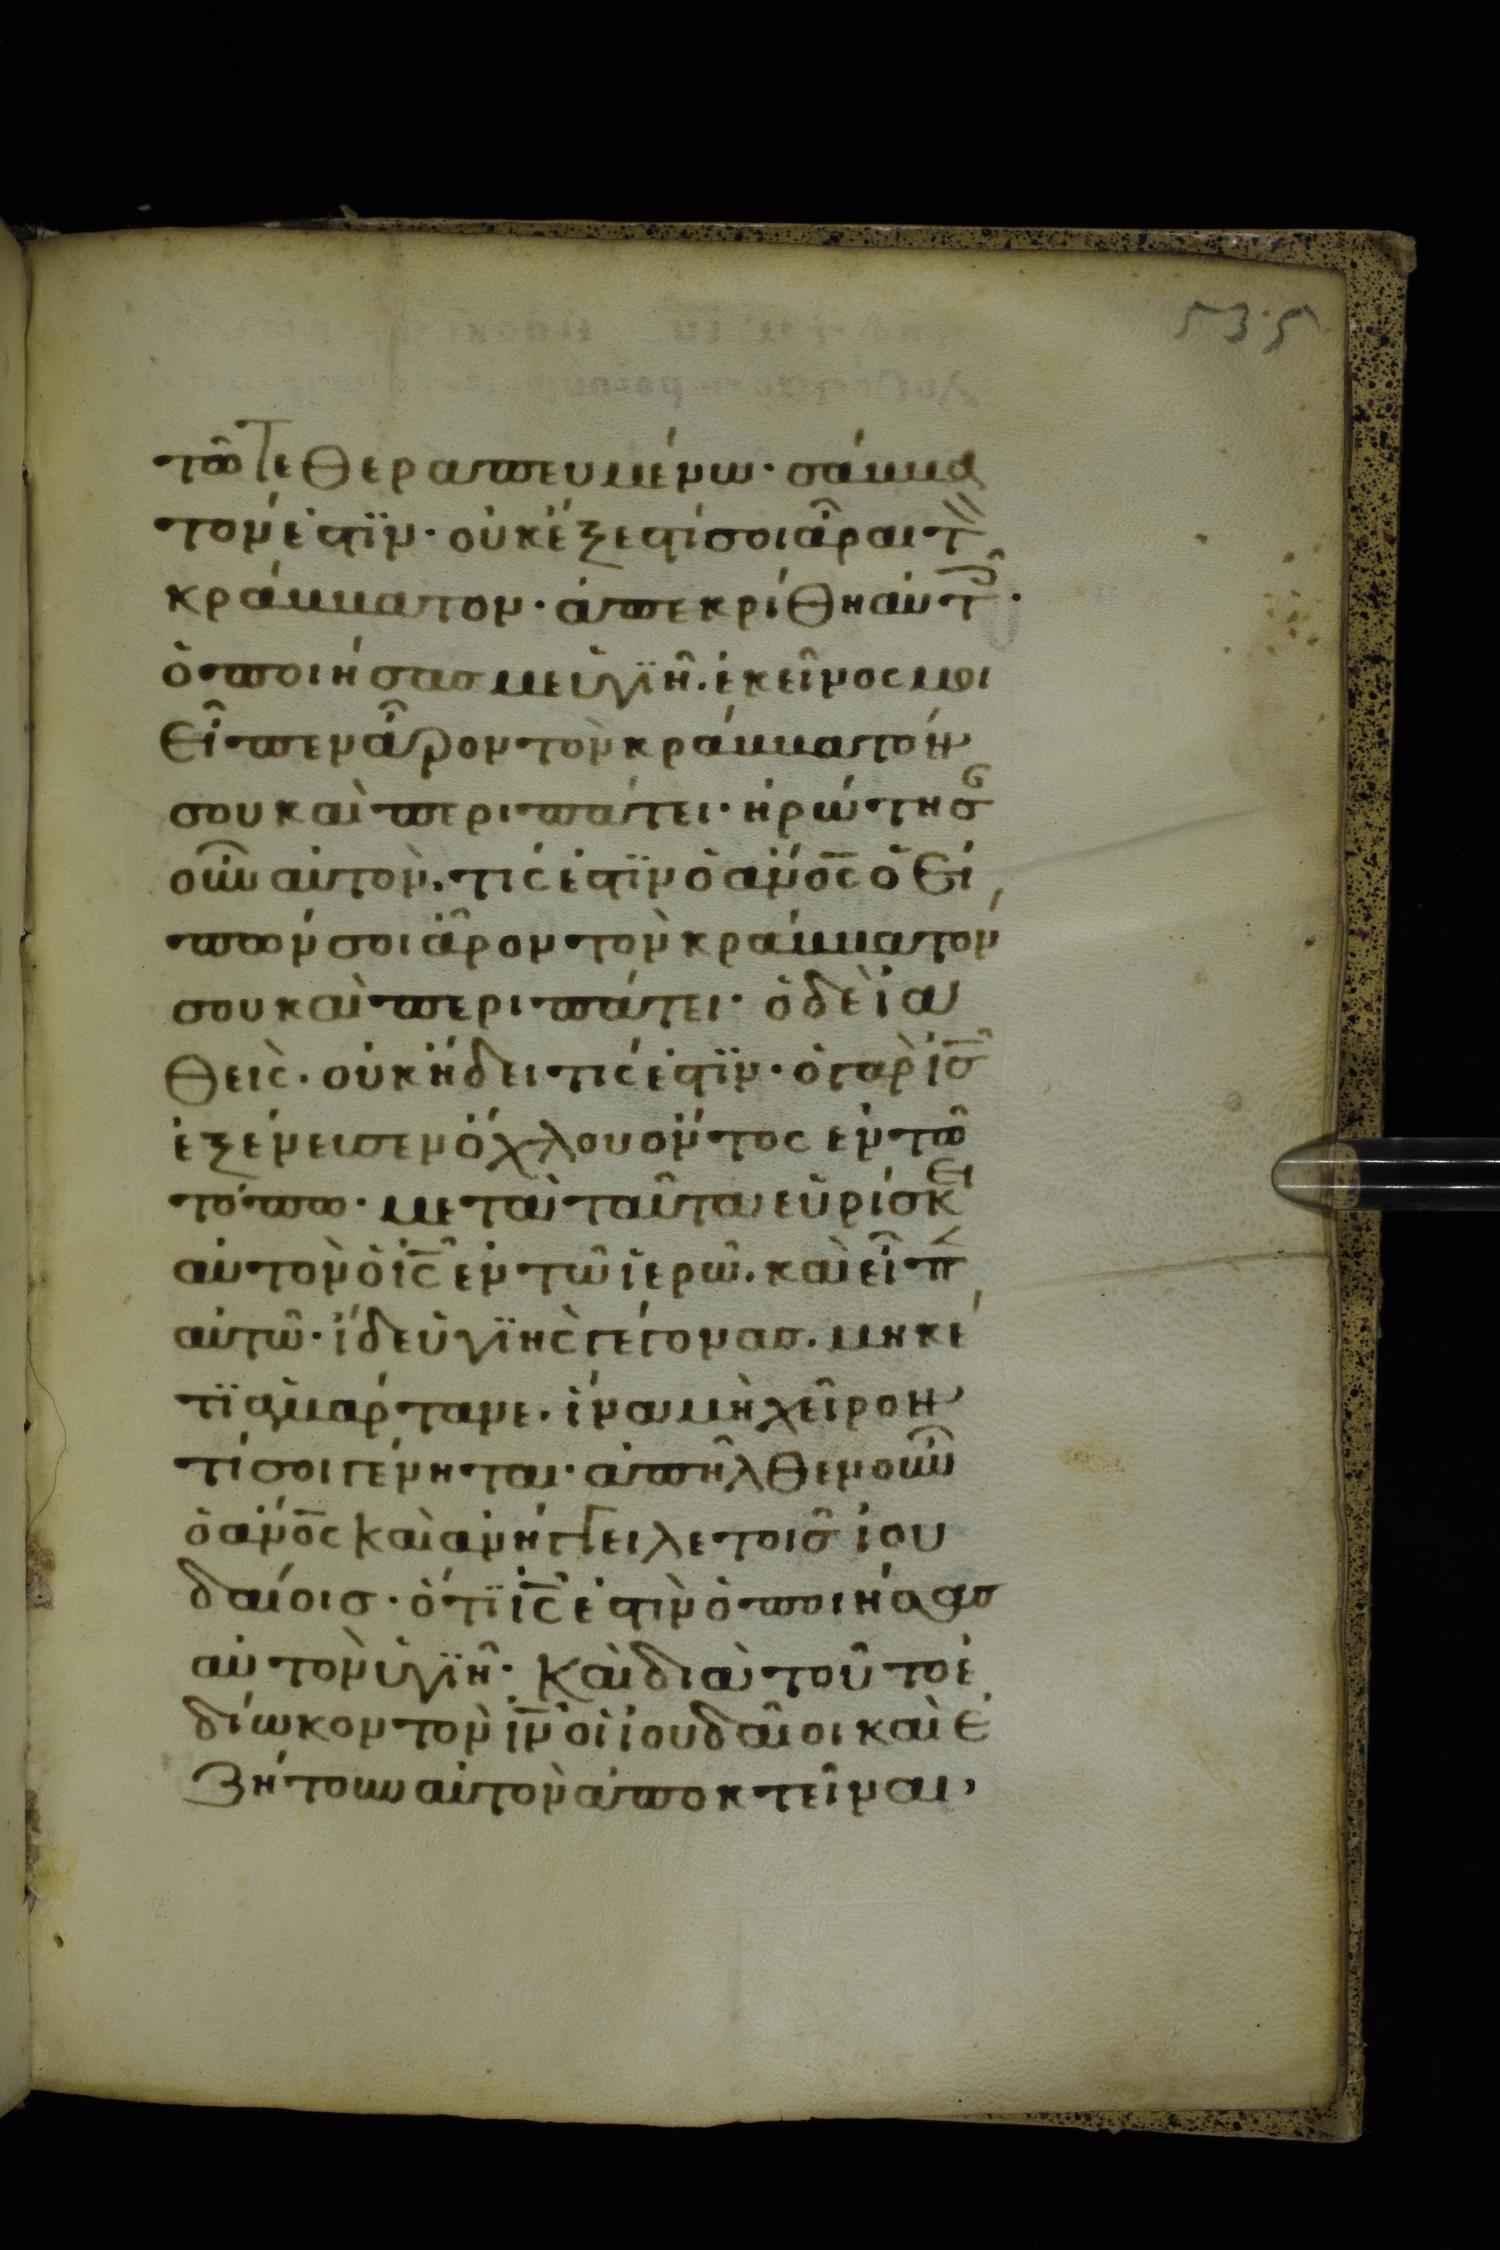 535
τῶ τεθεραπευμένω· σάββα
τόν ἐστϊν· οὐκ ἔξεστί σοι ἆραι τ̏
κράββατον· ἀπεκρίθη αὐτ̑·
ὁ ποιήσας με ὑγϊῆ. ἐκεῖνος μοι
εἶπεν ἆρον τὸν κράββατόν
σου καὶ περιπάτει· ἠρώτησ
οὖν αὐτὸν. τίς ἐστϊν ὁ ἄν̅ο̅ς̅ ὁ εἰ
πών σοι ἆρον τὸν κράββατόν
σου καὶ περιπάτει· ὁ δὲ ἰα
θεὶς. οὐκ ἤδει τίς ἐστϊν· ὁ γὰρ ι̅ς̅
ἐξένευσεν ὄχλου ὄντος ἐν τῶ
τόπω· μετὰ ταῦτα εὑρίσκει
αὐτὸν ὁ ι̅ς̅ ἐν τῶ ἱερῶ. καὶ εἶπ
αὐτῶ· ἴδε ὑγϊὴς γέγονας. μηκέ
τϊ ἁμάρτανε. ἵνα μὴ χεῖρον
τί σοι γένηται· ἀπῆλθεν οὖν
ὁ ἄν̅ο̅ς̅ καὶ ἀνήγγειλε τοῖς ἰου
δαίοις· ὅτϊ ι̅ς̅ ἐστὶν ὁ ποιήσας
αὐτὸν ὑγϊῆ· Καὶ διὰ τοῦτο ἐ
δίωκον τὸν ι̅ν̅ οἱ ἰουδαῖοι καὶ ἐ
ζήτουν αὐτὸν ἀποκτεῖναι,